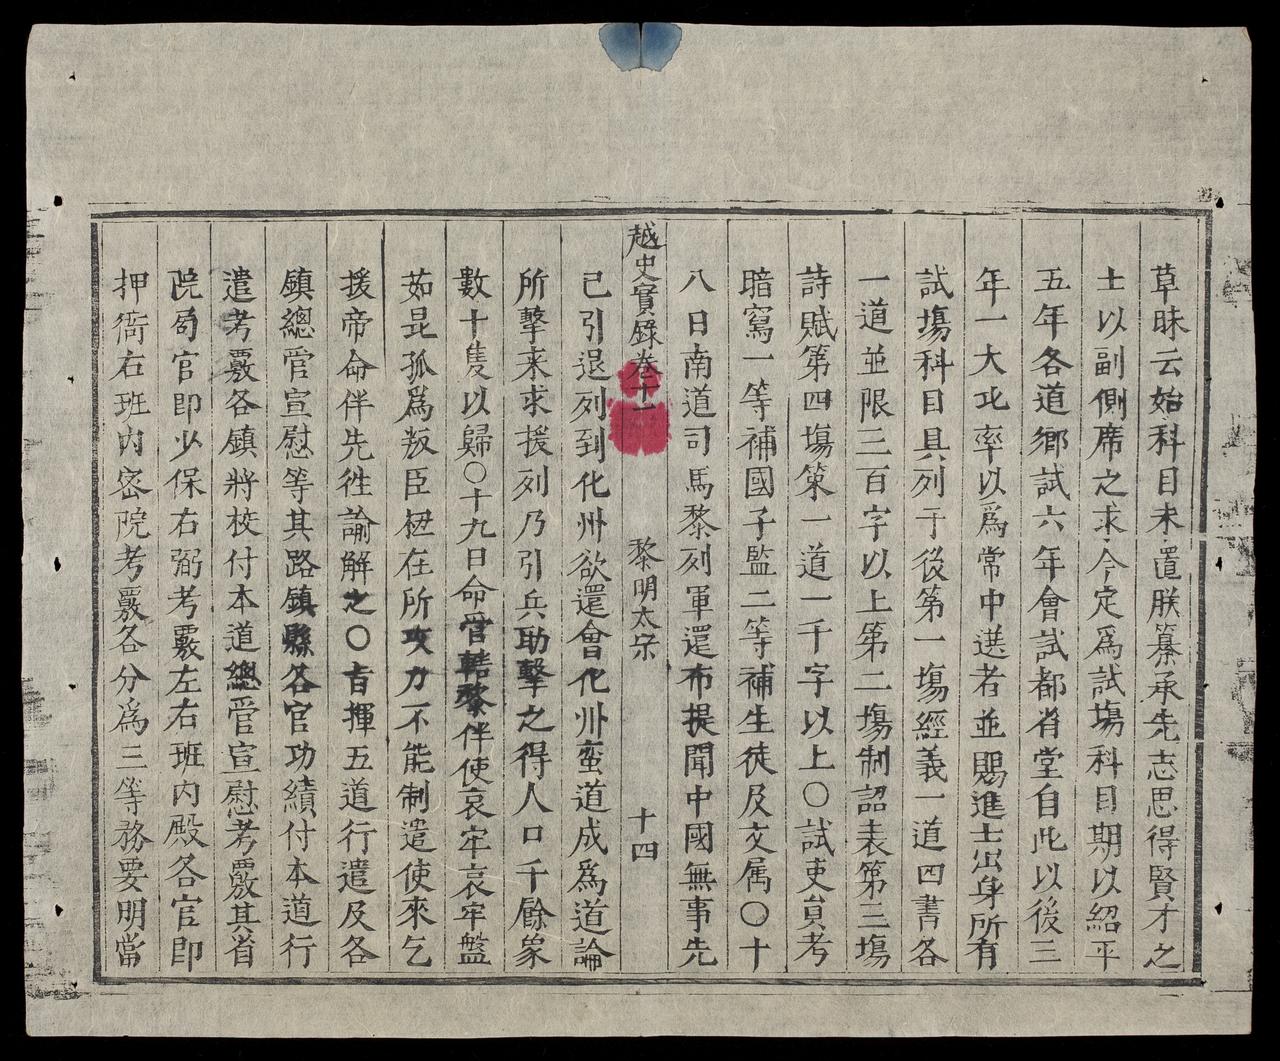 草昧云始科目未置朕纂承先志思得賢才之
士以副側席之求今定爲試塲科目期以紹平
五年各道鄉試六年會試都省堂自此以後三
年一大比率以爲常中選者並賜進士出身所有
試塲科目具列于後第一塲經義一道四書各
一道並限三百字以上第二塲制詔表第三塲
詩賦第四塲策一道一千字以上〇試吏員考
暗寫一等補國子監二等補生徒及文属〇十
八日南道司馬黎列軍還布提聞中國無事先
越史實錄卷十一 黎明太宗 十四
己引退列到化州欲還會化州蛮道成爲道論
所擊来求援列乃引兵助擊之得人口千餘象
數十隻以歸〇十九日命管轄黎伴使哀牢哀牢盤
茹昆孤爲叛臣杻在所攻力不能制遣使來乞
援帝命伴先徃諭解之〇㫖揮五道行遣及各
鎮總管宣慰等其路鎮縣各官功績付本道行
遣考覈各鎮將校付本道總管宣慰考覈其省
院局官即少保右弼考覈左右班内殿各官即
押衙右班内密院考覈各分爲三等務要明當